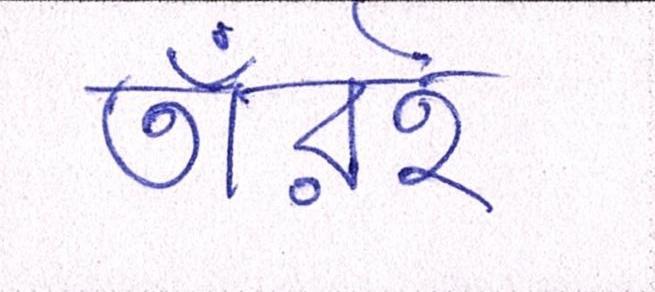 তাঁরই